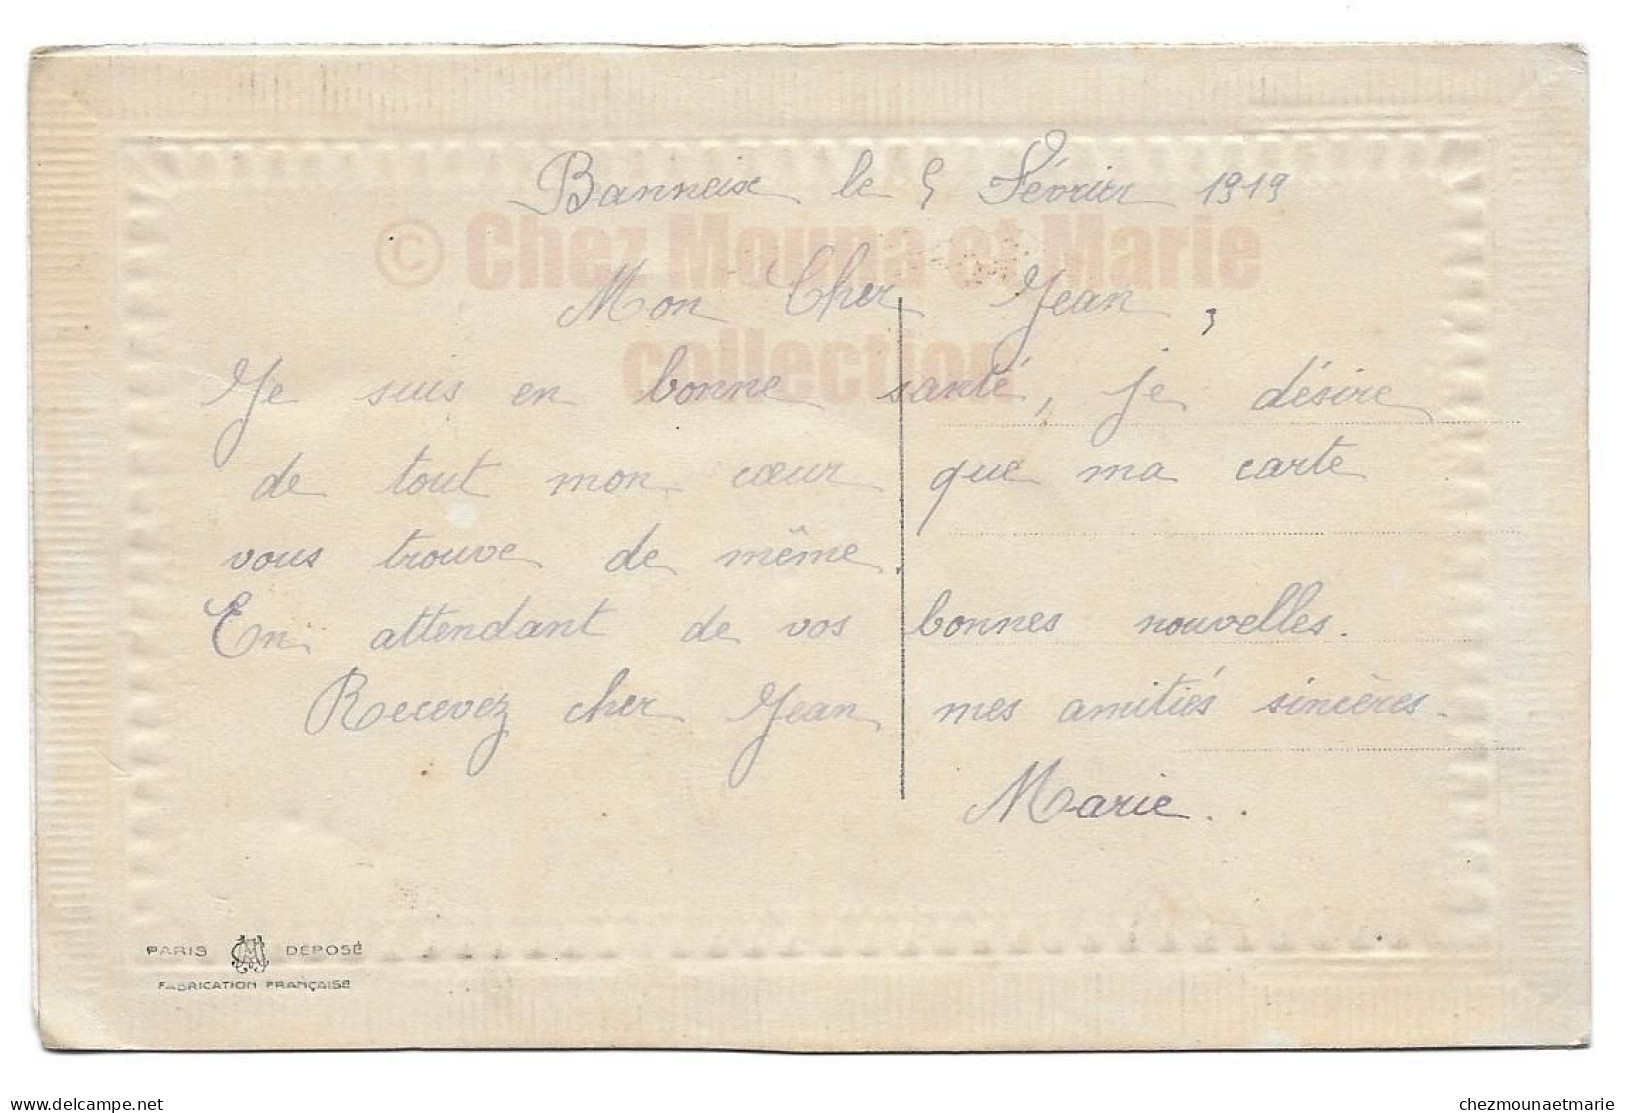 Banneix le 5 Février 1919
© Chez Mouna et Marie
collection
Mon Cher Jean,
Je suis en bonne santé, je désire
de tout mon cœur que ma carte
vous trouve de même.
En attendant de vos bonnes nouvelles.
Recevez cher Jean mes amitiés sincères.
Marie..
PARIS DÉPOSÉ
FABRICATION FRANÇAISE
www.delcampe.net
chezmounaetmarie